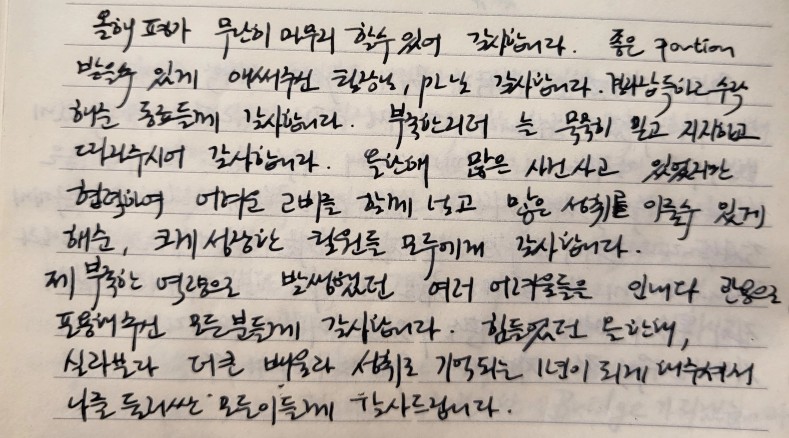 올해 평가 무난히 마무리 할수 있어 감사합니다. 좋은 portion
받을수 있게 애써주신 팀장님, PL님 감사합니다. 결과납득하고 수락
해준 동료들께 감사합니다. 부족한리더 는 묵묵히 믿고 지지하고
따라주시어 감사합니다. 올한해 많은 사건사고 있었지만
협력하여 어려운 고비를 함께 넘고 많은 성취를 이룰수 있게
해준, 크게성장한 팀원들 모두에게 감사합니다.
제 부족한 역량으로 발생했던 여러 어려움들은 인내와 관용으로
포용해주신 모든분들께 감사합니다. 힘들었던 올한해,
실패보다 더큰 배움과 성취로 기억되는 1년이 되게 해주셔서
나를 둘러싼 모든이들께 감사드립니다.